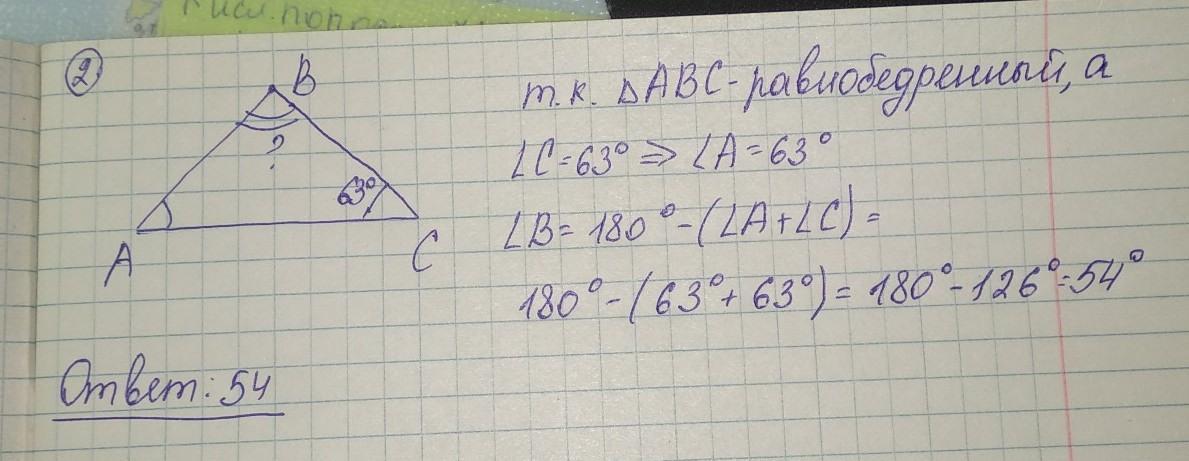 Кисл. попр
2
B
?
63°
A
C
т.к. △ABC-равнобедренный, а
∠C=63° ⇒ ∠A=63°
∠B= 180°-(∠A+∠C)=
180°-(63°+63°)= 180°-126°=54°
Ответ: 54